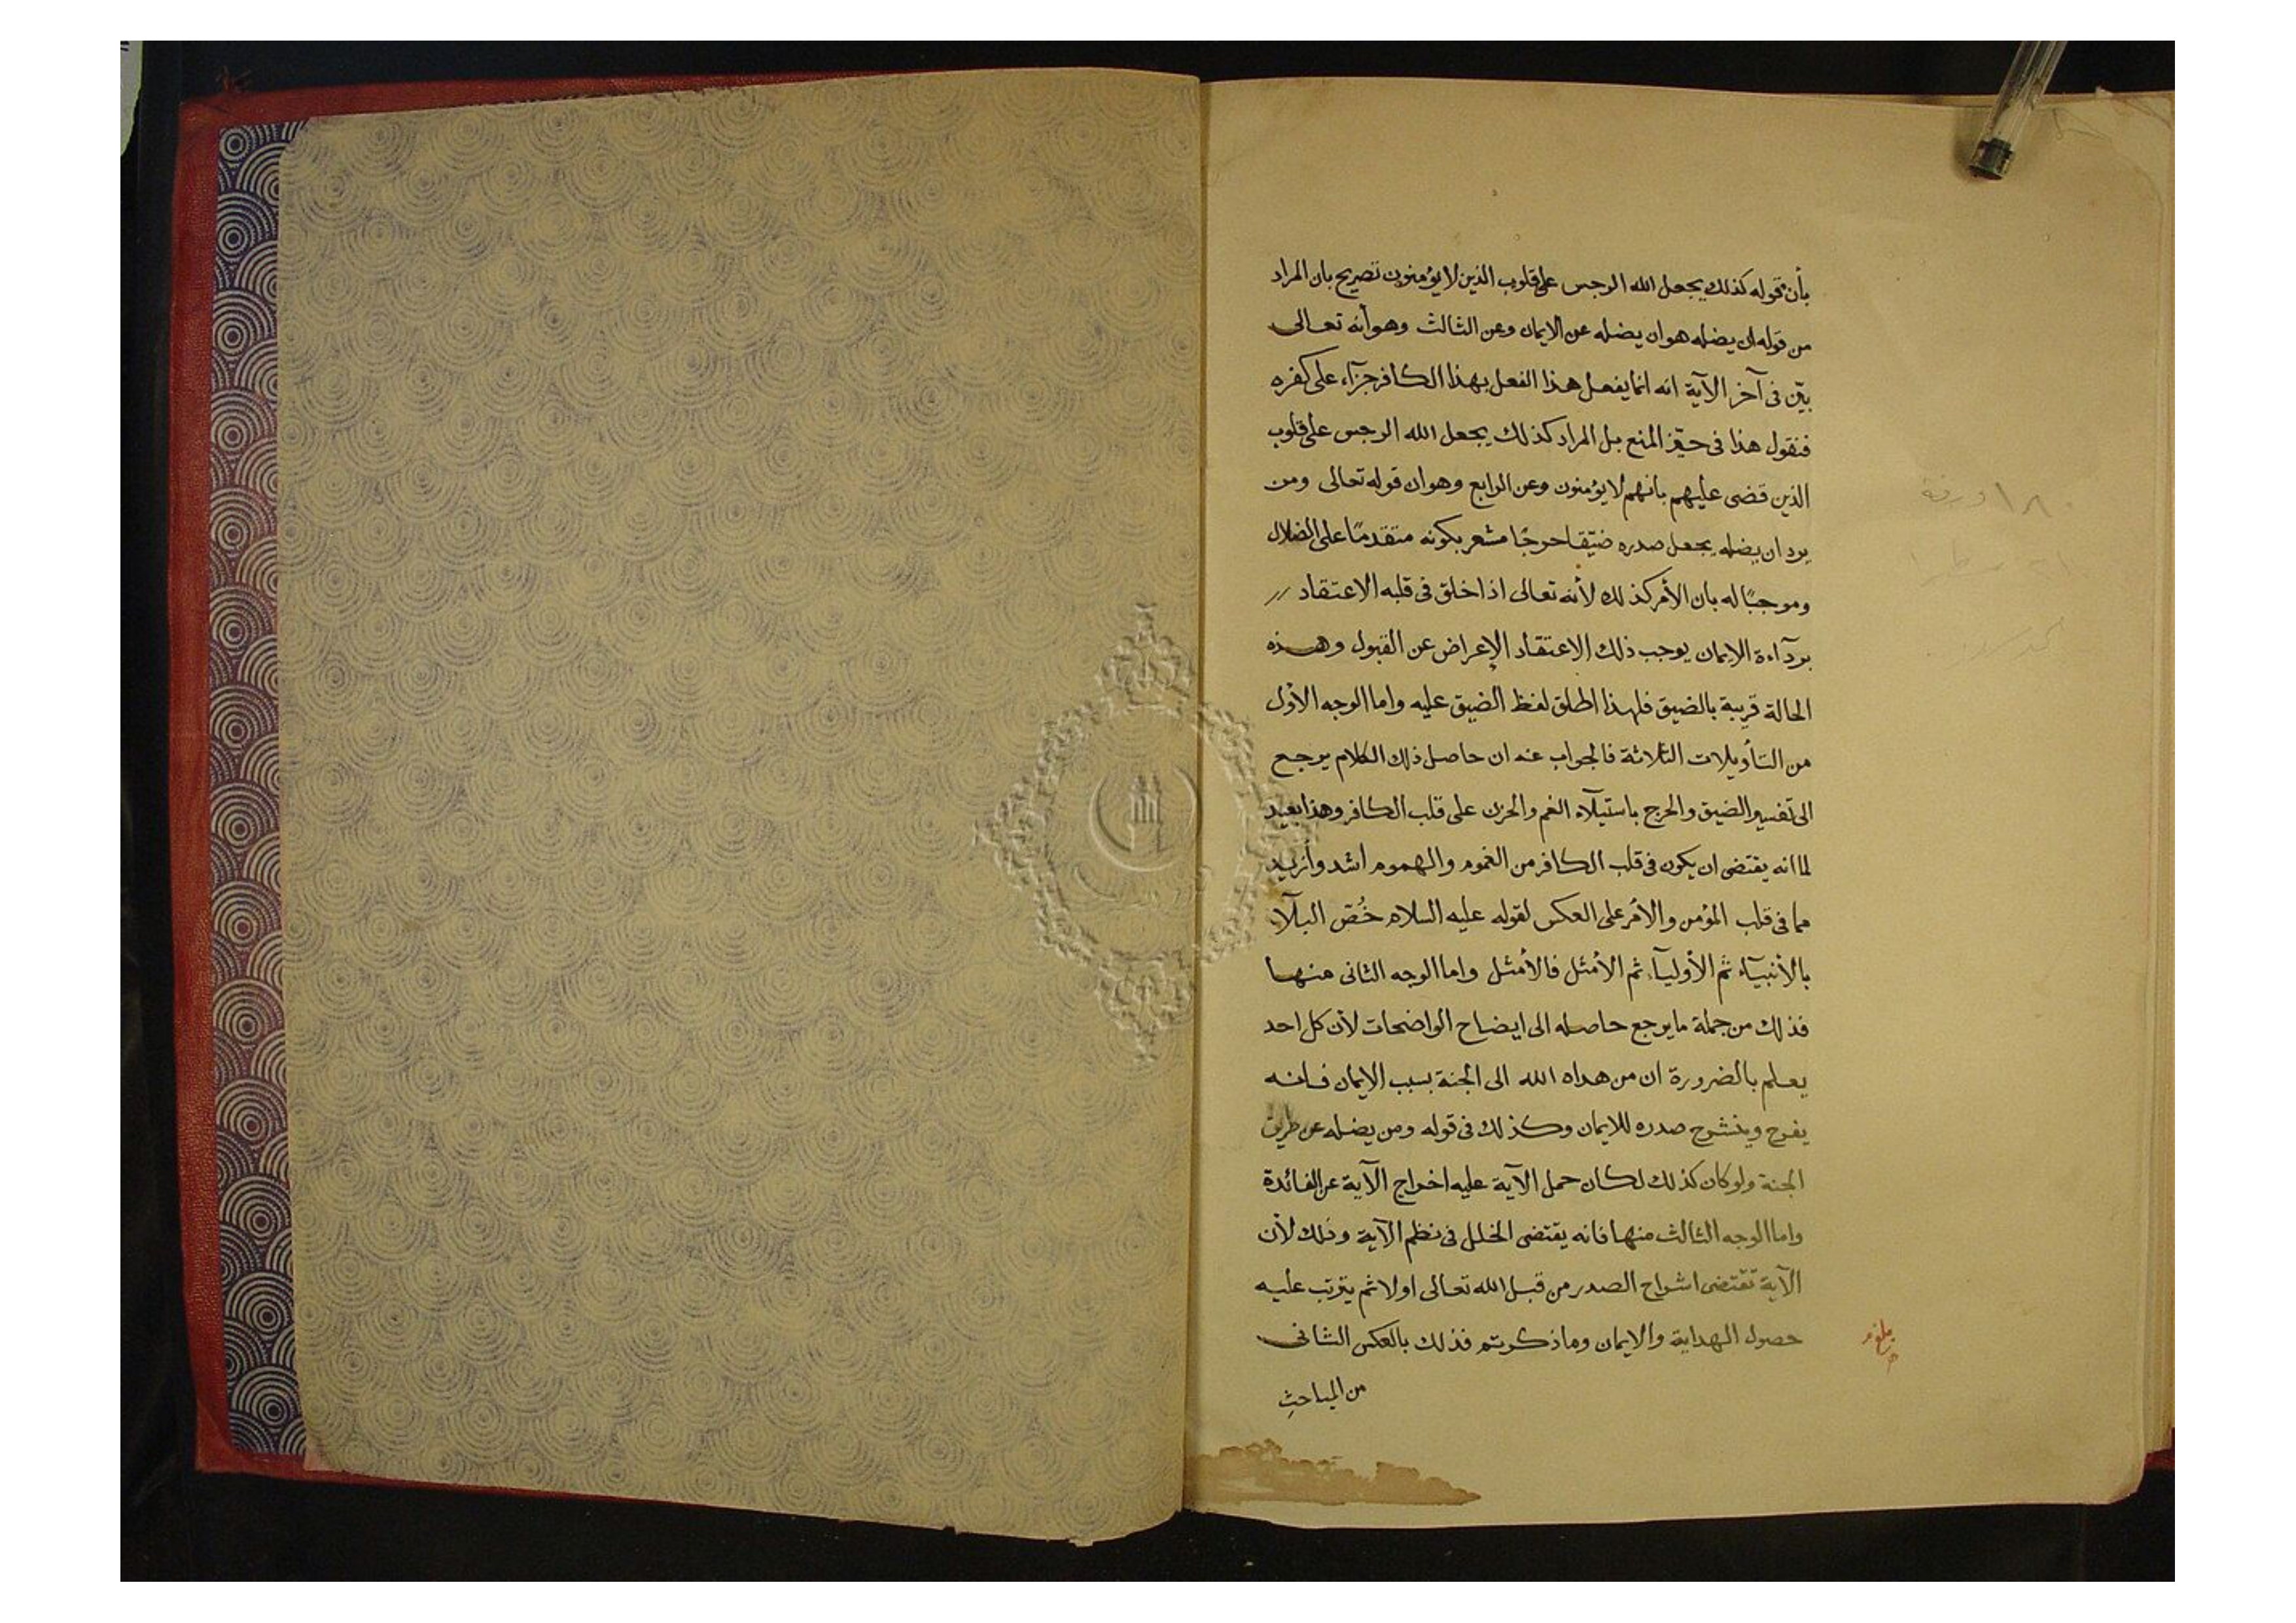 بأن قوله كذلك يجعل الله الرجس على قلوب الذين لا يؤمنون تصريح بان المراد
من قوله ان يضله هو ان يضله عن الايمان وعن الثالث وهو أنه تعالى
بيّن فى آخر الآية انه انما يفعل هذا الفعل بهذا الكافر جزآء على كفره
فنقول هذا فى حيّز المنع بل المراد كذلك يجعل الله الرجس على قلوب
الذين قضى عليهم بانهم لا يؤمنون وعن الرابع وهو ان قوله تعالى ومن
يرد ان يضله يجعل صدره ضيّقا حرجًا مشعر بكونه متقدمًا على الضلال
وموجبًا له بان الأمر كذلك لأنه تعالى اذا خلق فى قلبه الاعتقاد
بردآءة الايمان يوجب ذلك الاعتقاد الإعراض عن القبول وهذه
الحالة قريبة بالضيق فلهذا اطلق لفظ الضيق عليه واما الوجه الأول
من التأويلات الثلاثة فالجواب عنه ان حاصل ذلك الكلام يرجع
الى تفسير الضيق والحرج باستيلآء الغم والحزن على قلب الكافر وهذا بعيد
لما انه يقتضى ان يكون فى قلب الكافر من الغموم والهموم اشد وأزيد
مما فى قلب المؤمن والأمر على العكس لقوله عليه السلام خُصّ البلآء
بالأنبيآء ثم الأوليآء ثم الأمثل فالأمثل واما الوجه الثانى منها
فذلك من جملة ما يرجع حاصله الى ايضاح الواضحات لأن كل احد
يعلم بالضرورة ان من هداه الله الى الجنة بسبب الايمان فانه
يفرح وينشرح صدره للايمان وكذلك فى قوله ومن يضله عن طريق
الجنة ولو كان كذلك لكان حمل الآية عليه اخراج الآية عن الفائدة
واما الوجه الثالث منها فانه يقتضى الخلل فى نظم الآية وذلك لأن
الآية تقتضى اشراح الصدر من قبل الله تعالى اولا ثم يترتب عليه
حصول الهداية والايمان وما ذكرتم فذلك بالعكس الثانى
من المباحث
١٨٠ ورقة